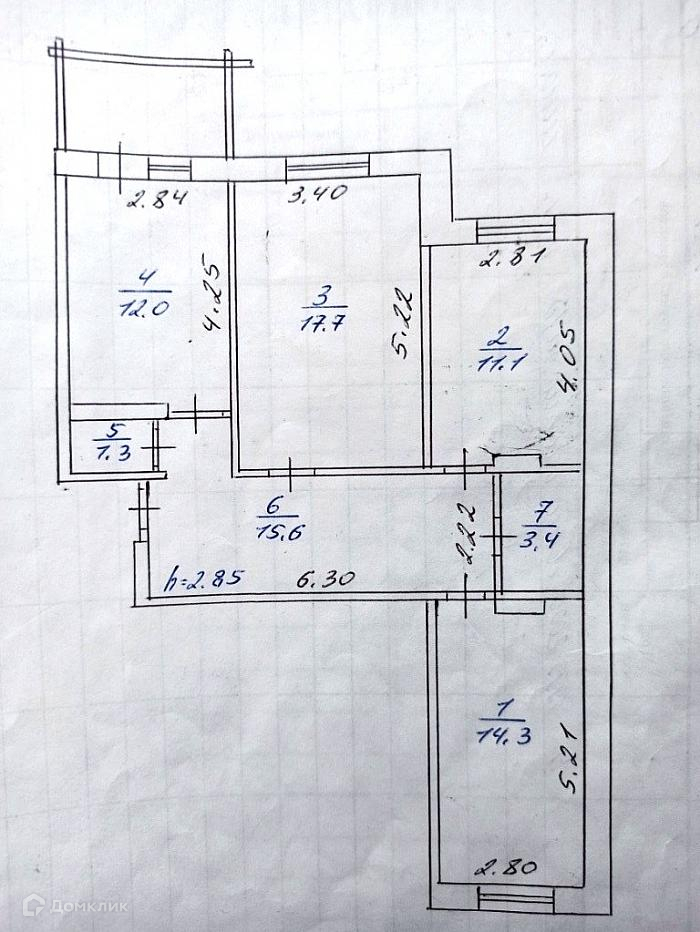 2.84
3.40
2.81
4
12.0
4.25
3
17.7
5.22
2
11.1
4.05
5
1.3
6
15.6
2.22
7
3.4
h=2.85
6.30
1
14.3
5.21
2.80
Домклик